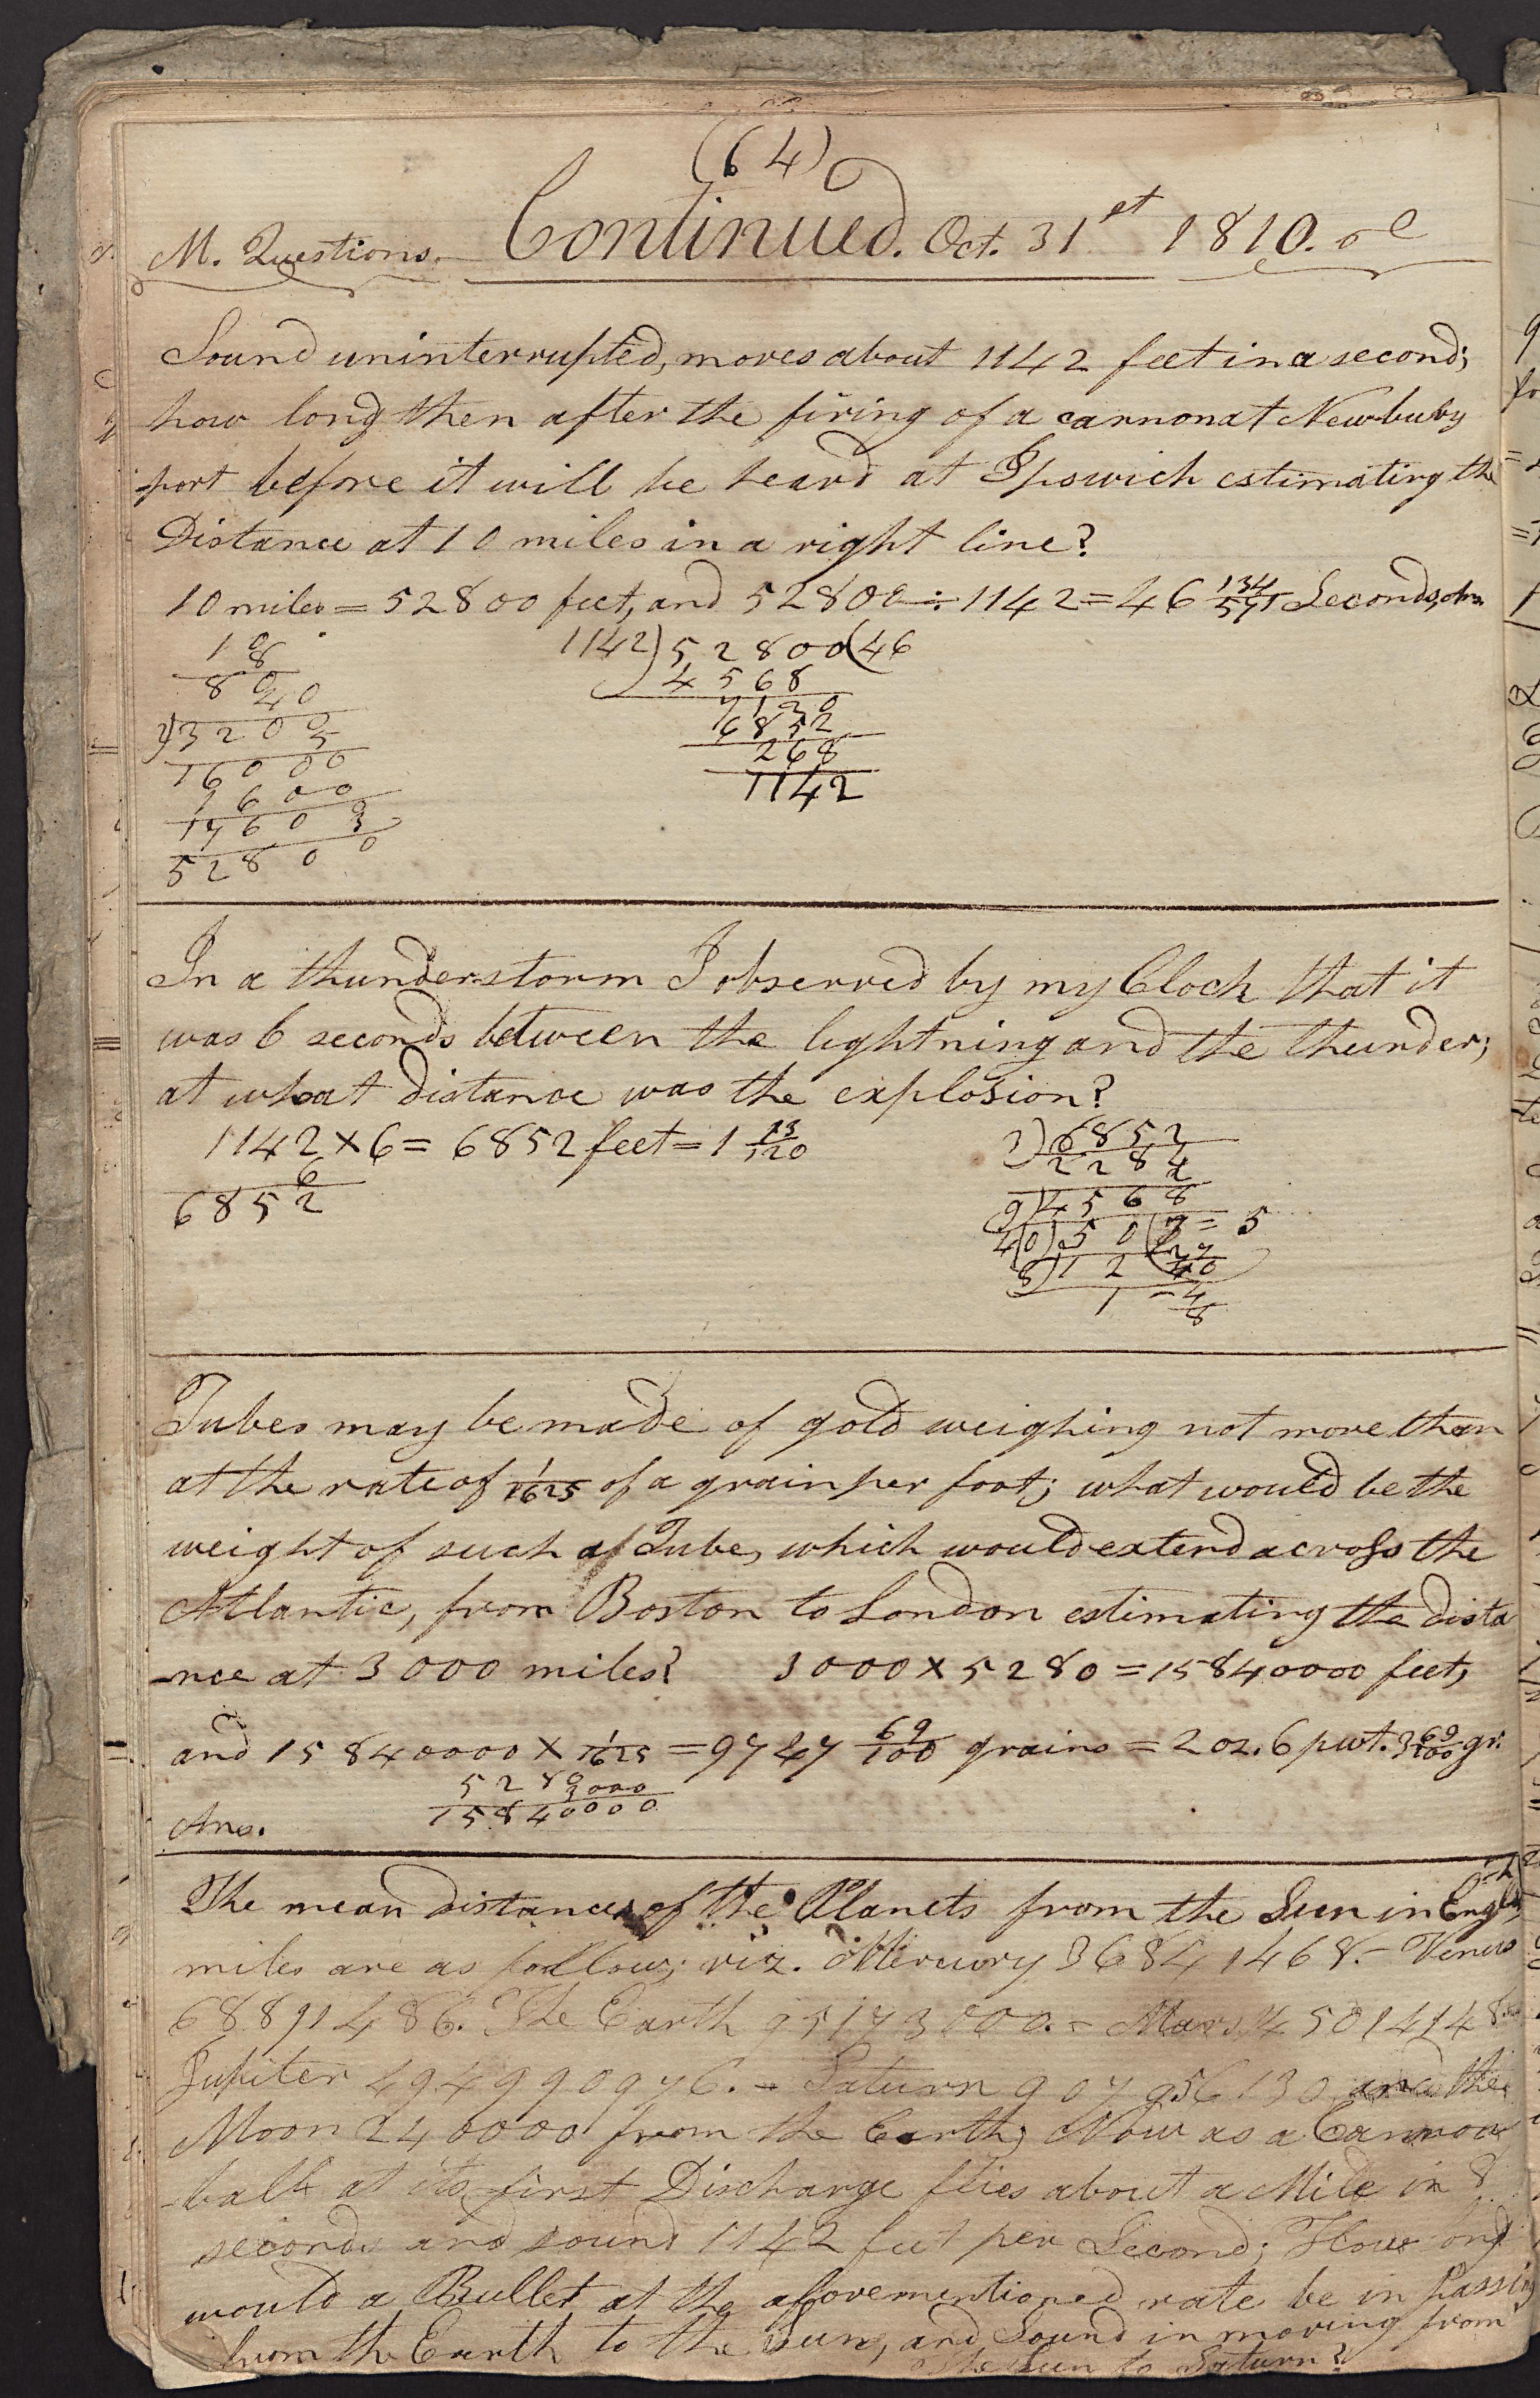 (64)
M. Questions. Continued. Oct. 31st 1810.
Sound uninterrupted, moves about 1142 feet in a second;
how long then after the firing of a cannon at Newbury
port before it will be heard at Ipswich estimating the
Distance at 10 miles in a right line?
10 miles = 52800 feet, and 52800 ÷ 1142 = 46 134/571 Seconds,
10 1142)52800(46
8 4568
80 7130
40 6852
2)3200 268
5 1142
16000
1600
17600
3
52800
In a thunderstorm I observed by my Clock that it
was 6 seconds between the lightning and the thunder;
at what distance was the explosion?
1142 × 6 = 6852 feet = 1 /120 3)6852
6 2284
6852 2
9)4568
4|0)50|7 = 5
8)12 27/40
1 - 4/8
Tubes may be made of gold weighing not more than
at the rate of 1/1625 of a grain per foot; what would be the
weight of such a Tube, which would extend across the
Atlantic, from Boston to London estimating the dista
-nce at 3000 miles? 3000 × 5280 = 15840000 feet,
and 15840000 × 1/1625 = 9747 69/100 grains = 2 oz. 6 pwt. 3 69/100 gr.
5280
3000
Ans. 15840000
The mean distances of the Planets from the Sun in English
miles are as follow; viz. Mercury 36841468. - Venus
68891486. The Earth 95173000. - Mars 145014148
Jupiter 494990976. - Saturn 907956130 and the
Moon 240000 from the Earth; Now as a Cannon
ball at its first Discharge flies about a Mile in 8
seconds and sound 1142 feet per Second; How long
would a Bullet at the aforementioned rate be in passing
from the Earth to the Sun, and Sound in moving from
the Sun to Saturn?